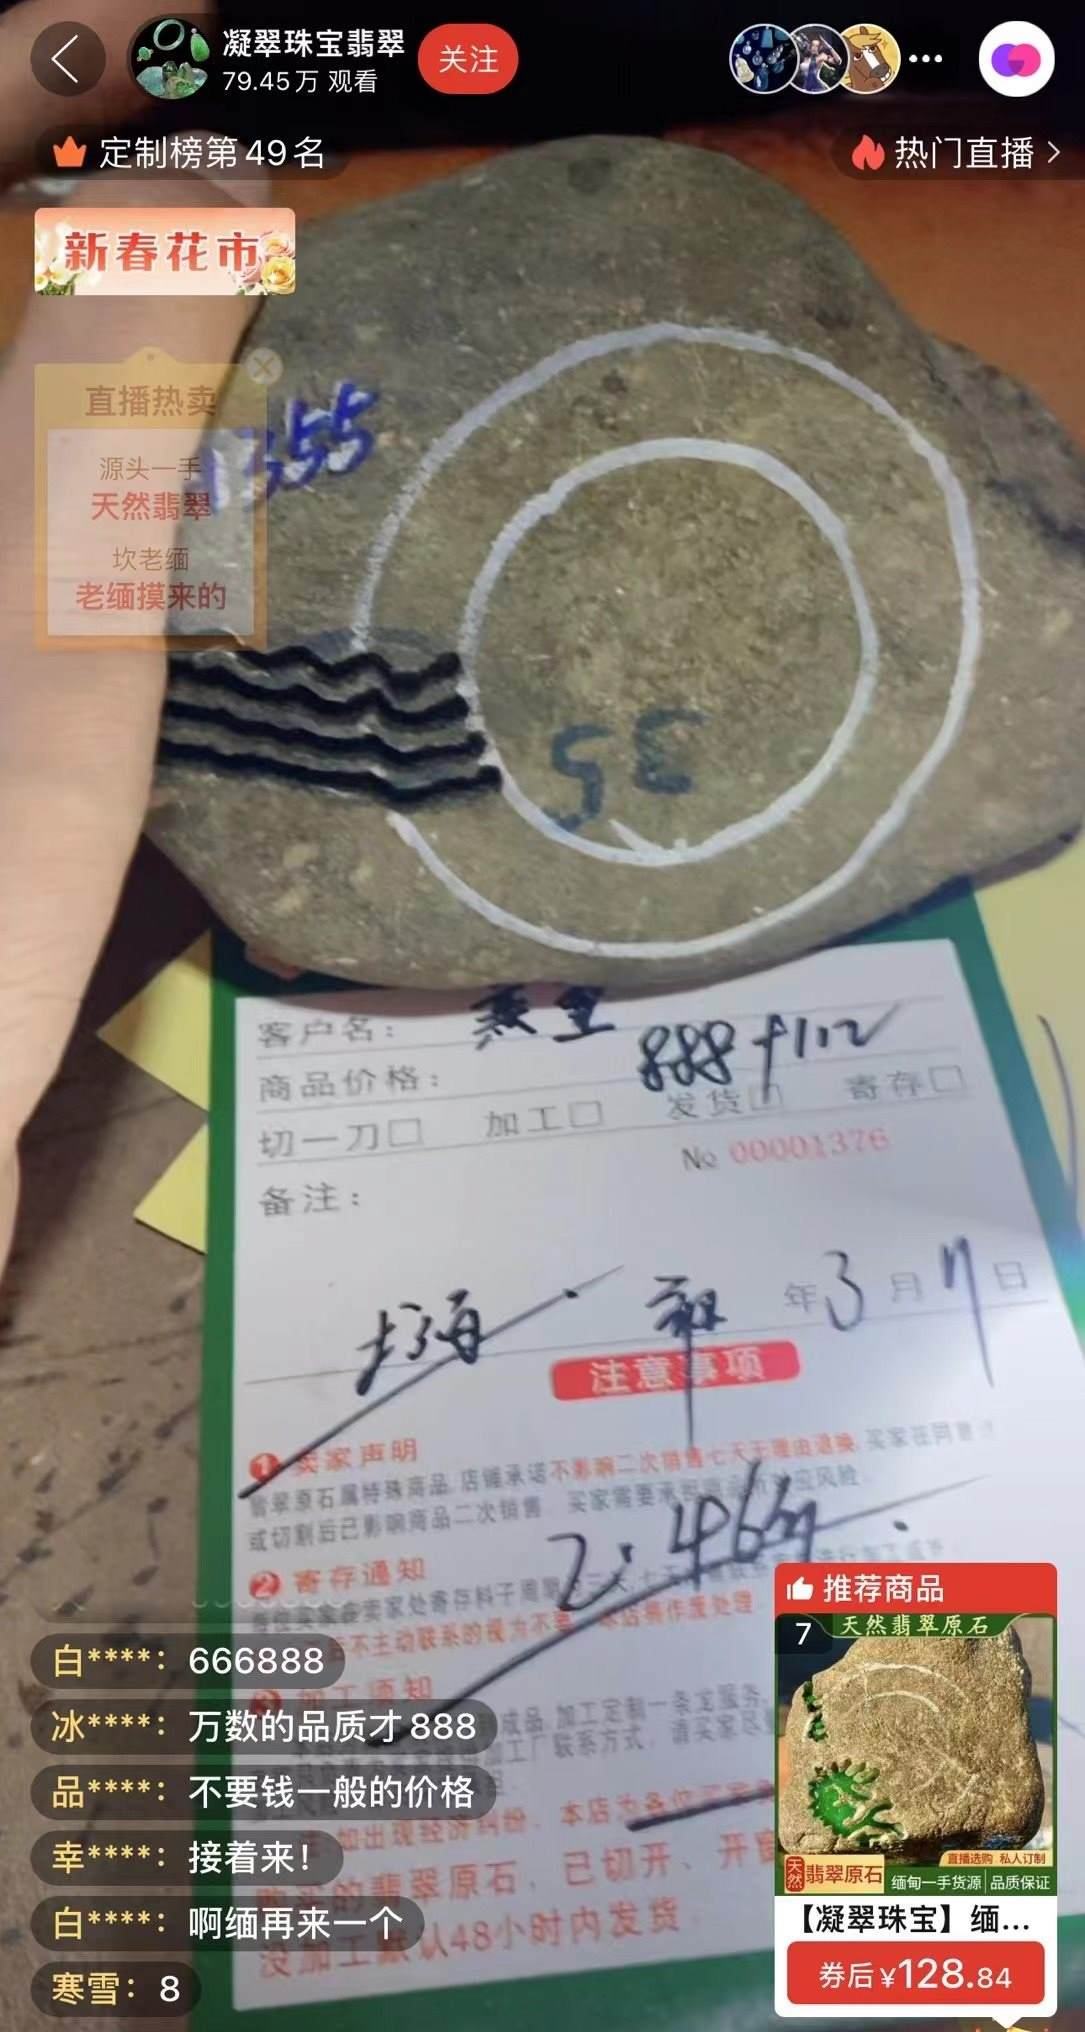 凝翠珠宝翡翠
79.45万 观看
关注
定制榜第49名
热门直播
新春花市
直播热卖
源头一手
天然翡翠
坎老缅
老缅摸来的
1355
35
客户名:
商品价格: 888+112
切一刀 加工 发货 寄存
No 00001376
备注:
上海
年3月17日
注意事项
1 卖家声明
翡翠原石属特殊商品,店铺承诺不影响二次销售七天无理由退换,买家在同意
或切割后已影响商品二次销售,买家需要承担
应风险
2 寄存通知
2.46
不主动联系的视为不要
本店将作废处理
3 加工须知
加工定制一条龙服务
厂联系方式
如出现经济纠纷,本店为各位
的翡翠原石,已切开、开窗
没加工默认48小时内发货
白****:666888
冰****:万数的品质才888
品****:不要钱一般的价格
幸****:接着来!
白****:啊缅再来一个
寒雪:8
推荐商品
7
天然翡翠原石
直播选购 私人订制
天然翡翠原石
缅甸一手货源 品质保证
【凝翠珠宝】缅...
券后¥128.84